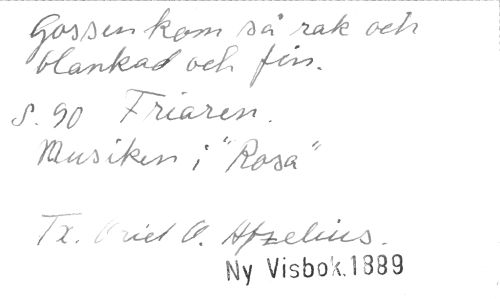 Gossen kom så rak och
blankad och fin.
S. 90 Friaren.
Musiken i "Rosa"
Tx. Arvid A. Afzelius.
Ny Visbok.1889